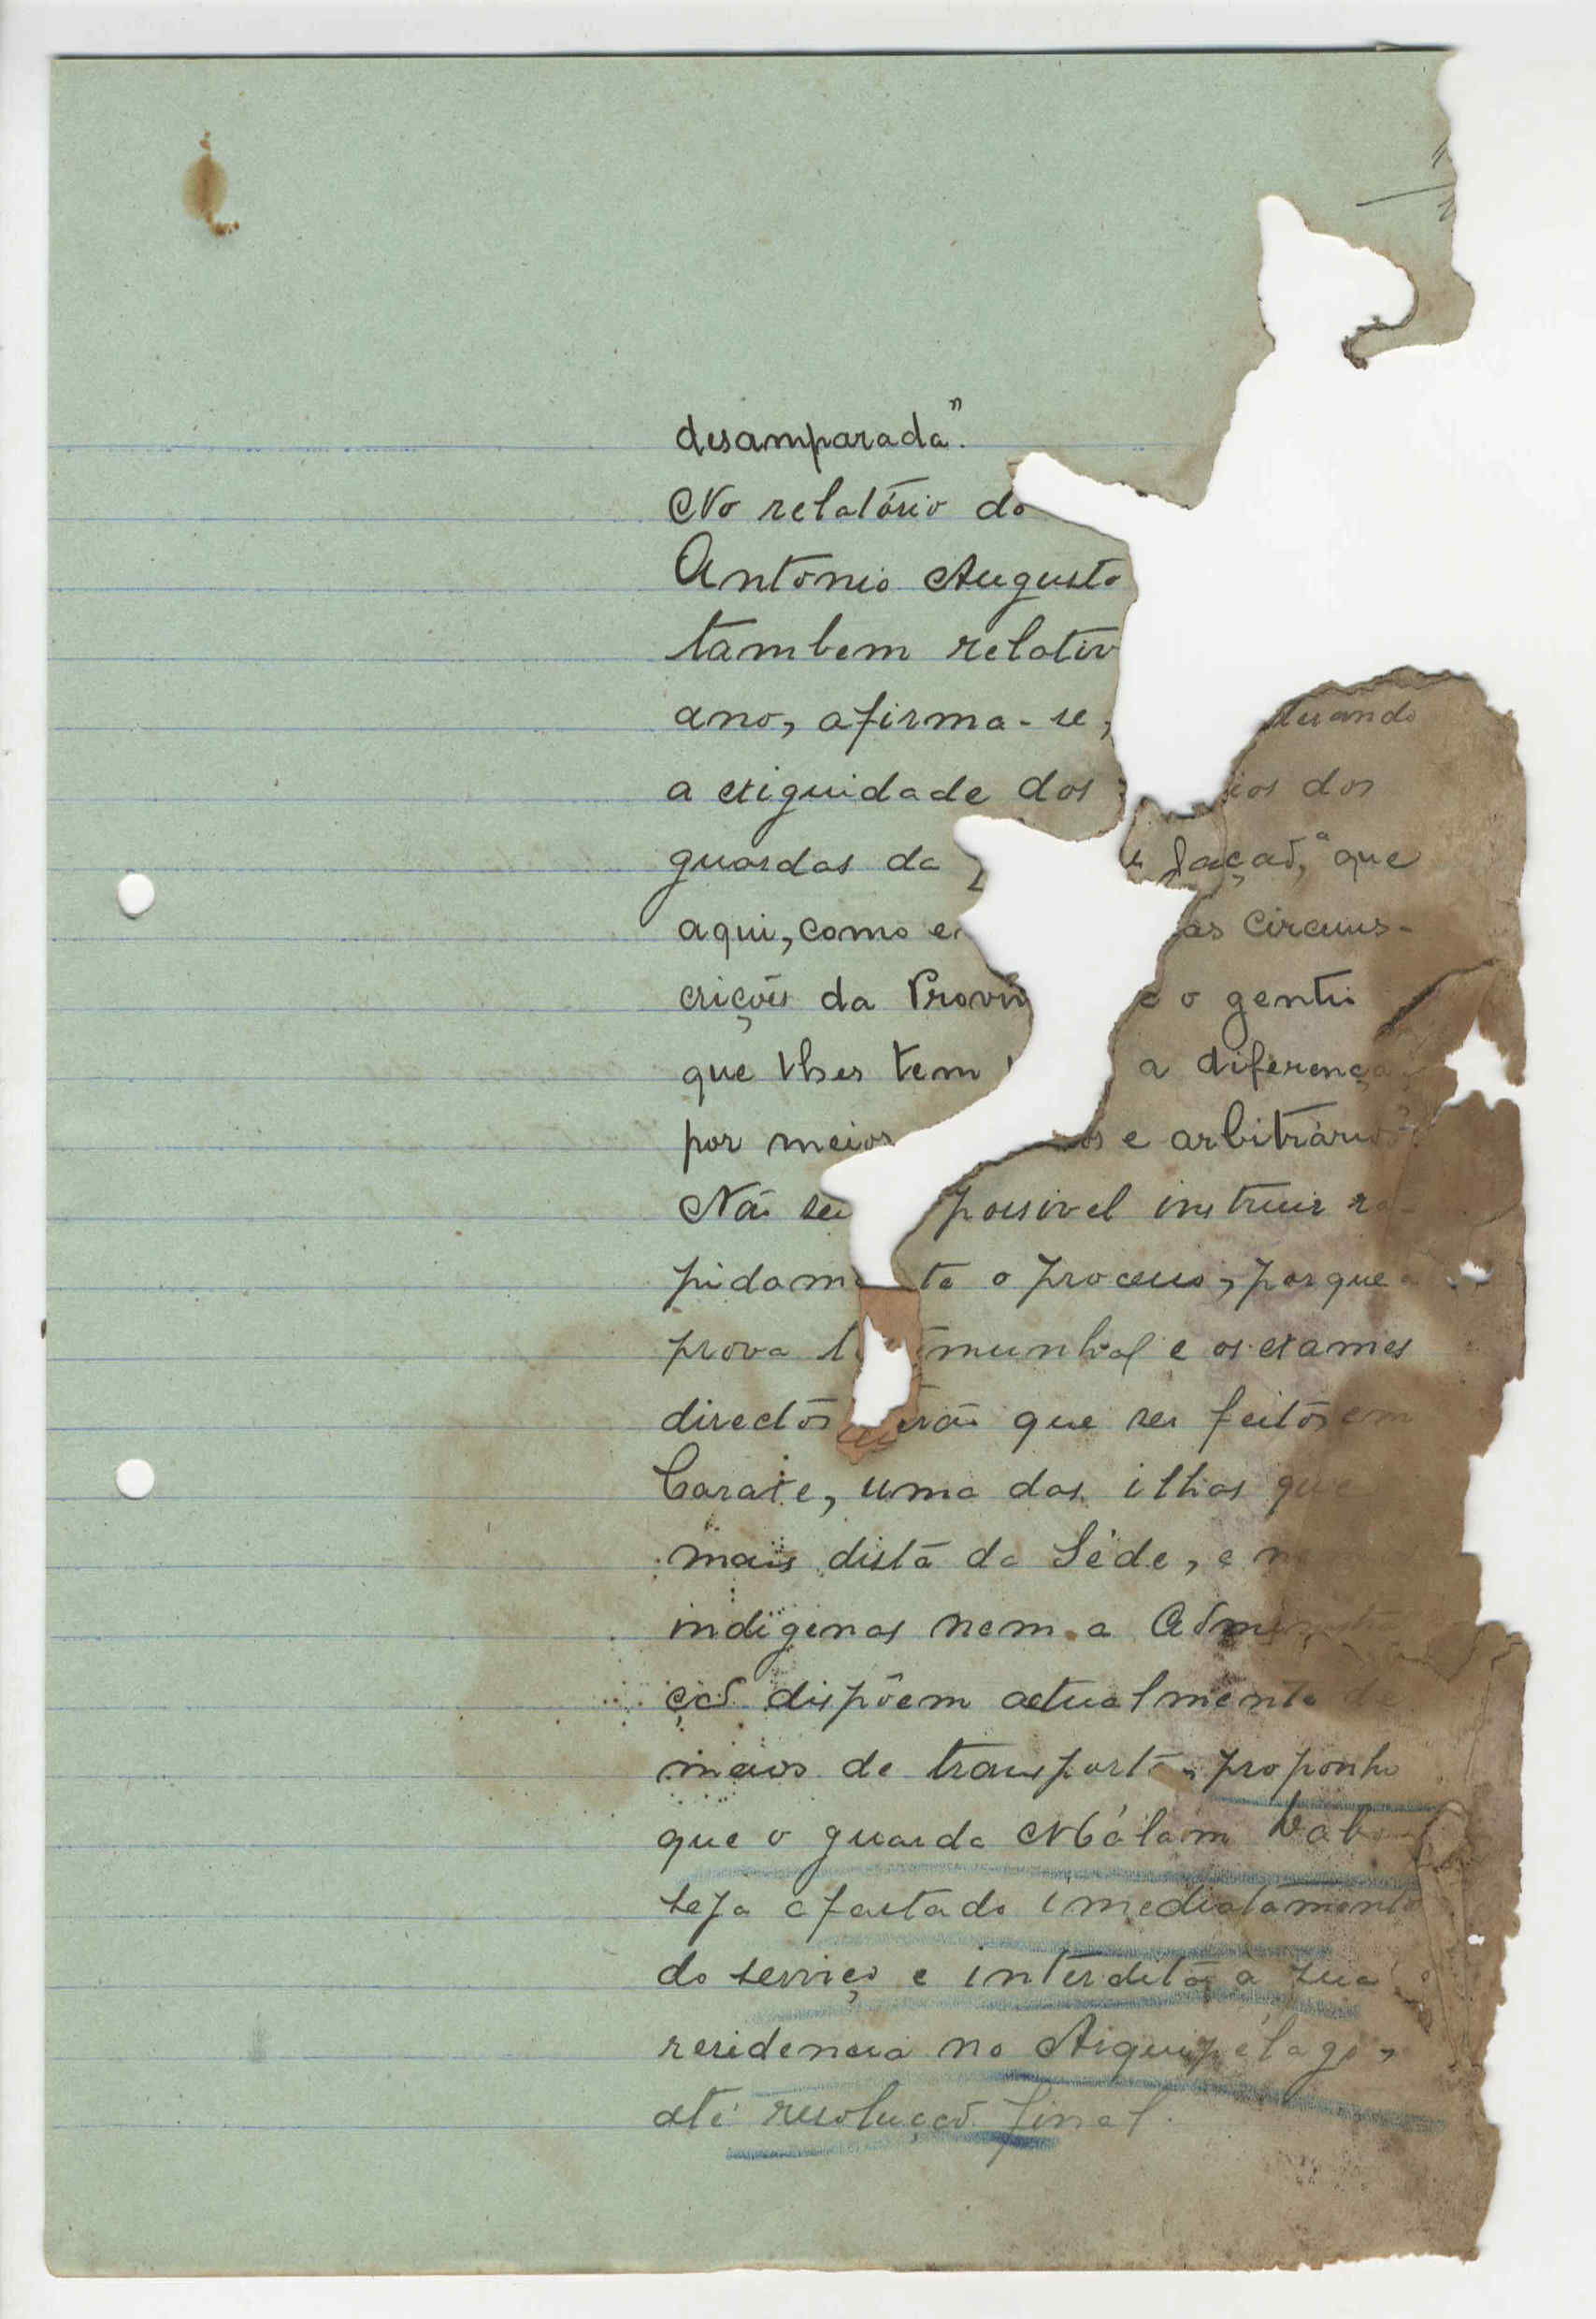 desamparada".
No relatório do
Antonio Augusto
tambem relativ
ano, afirma-se, tuando
a exiguidade dos ios dos
guardas da fação, "que
aqui, como e as circuns-
crições da Provin e o gentio
que lhes tem a diferença
por meios os e arbitrários".
Não se possivel instruir ra-
pidam te o processo, porque a
prova t munhal e os exames
directos erão que ser feitos em
Carate, uma das ilhas que
mais dista da Séde, e
indigenas nem a Administra
ção dispõem actualmente de
meios de transporte, proponho
que o guarda Málam
seja afastado imediatamente
do serviço e interdita a sua
residencia no Arquipélago,
até resolução final.